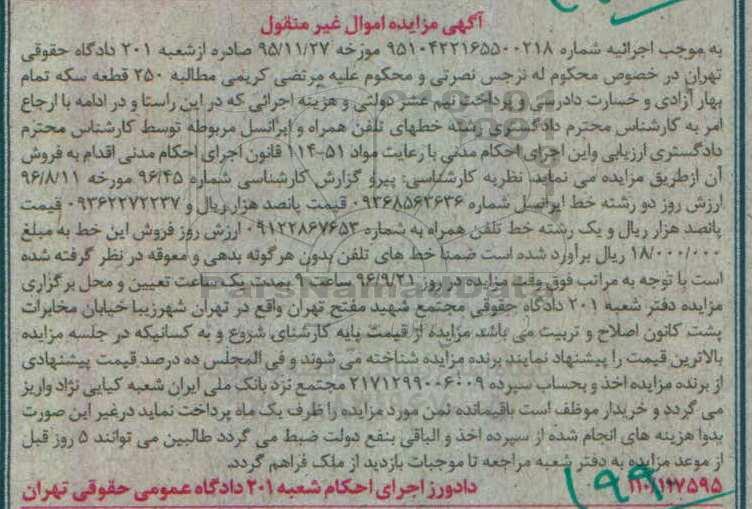 آگهی مزایده اموال غیر منقول
به موجب اجرائیه شماره ۹۵۱۰۴۲۲۱۶۵۵۰۰۲۱۸ مورخه ۹۵/۱۱/۲۷ صادره ازشعبه ۲۰۱ دادگاه حقوقی
تهران در خصوص محکوم له نرجس نصرتی و محکوم علیه مرتضی کریمی مطالبه ۲۵۰ قطعه سکه تمام
بهار آزادی و خسارت دادرسی و پرداخت نیم عشر دولتی و هزینه اجرائی که در این راستا و در ادامه با ارجاع
امر به کارشناس محترم دادگستری رشته خطهای تلفن همراه و ایرانسل مربوطه توسط کارشناس محترم
دادگستری ارزیابی واین اجرای احکام مدنی با رعایت مواد ۵۱-۱۱۴ قانون اجرای احکام مدنی اقدام به فروش
آن ازطریق مزایده می نماید. نظریه کارشناسی: پیرو گزارش کارشناسی شماره ۹۶/۴۵ مورخه ۹۶/۸/۱۱
ارزش روز دو رشته خط ایرانسل شماره ۰۹۳۶۸۵۶۲۶۳۶ قیمت پانصد هزار ریال و ۰۹۳۶۲۲۷۲۲۳۷ قیمت
پانصد هزار ریال و یک رشته خط تلفن همراه به شماره ۰۹۱۲۲۸۶۷۶۵۳ ارزش روز فروش این خط به مبلغ
۱۸/۰۰۰/۰۰۰ ریال برآورد شده است ضمنا خط های تلفن بدون هرگونه بدهی و معوقه در نظر گرفته شده
است با توجه به مراتب فوق وقت مزایده در روز ۹۶/۹/۲۱ ساعت ۹ بمدت یک ساعت تعیین و محل برگزاری
مزایده دفتر شعبه ۲۰۱ دادگاه حقوقی مجتمع شهید مفتح تهران واقع در تهران شهرزیبا خیابان مخابرات
پشت کانون اصلاح و تربیت می باشد مزایده از قیمت پایه کارشنای شروع و به کسانیکه در جلسه مزایده
بالاترین قیمت را پیشنهاد نمایند برنده مزایده شناخته می شوند و فی المجلس ده درصد قیمت پیشنهادی
از برنده مزایده اخذ و بحساب سپرده ۲۱۷۱۲۹۹۰۰۶۰۰۹ مجتمع نزد بانک ملی ایران شعبه کیایی نژاد واریز
می گردد و خریدار موظف است باقیمانده ثمن مورد مزایده را ظرف یک ماه پرداخت نماید درغیر این صورت
بدوا هزینه های انجام شده از سپرده اخذ و الباقی بنفع دولت ضبط می گردد طالبین می توانند ۵ روز قبل
از موعد مزایده به دفتر شعبه مراجعه تا موجبات بازدید از ملک فراهم گردد.
دادورز اجرای احکام شعبه ۲۰۱ دادگاه عمومی حقوقی تهران